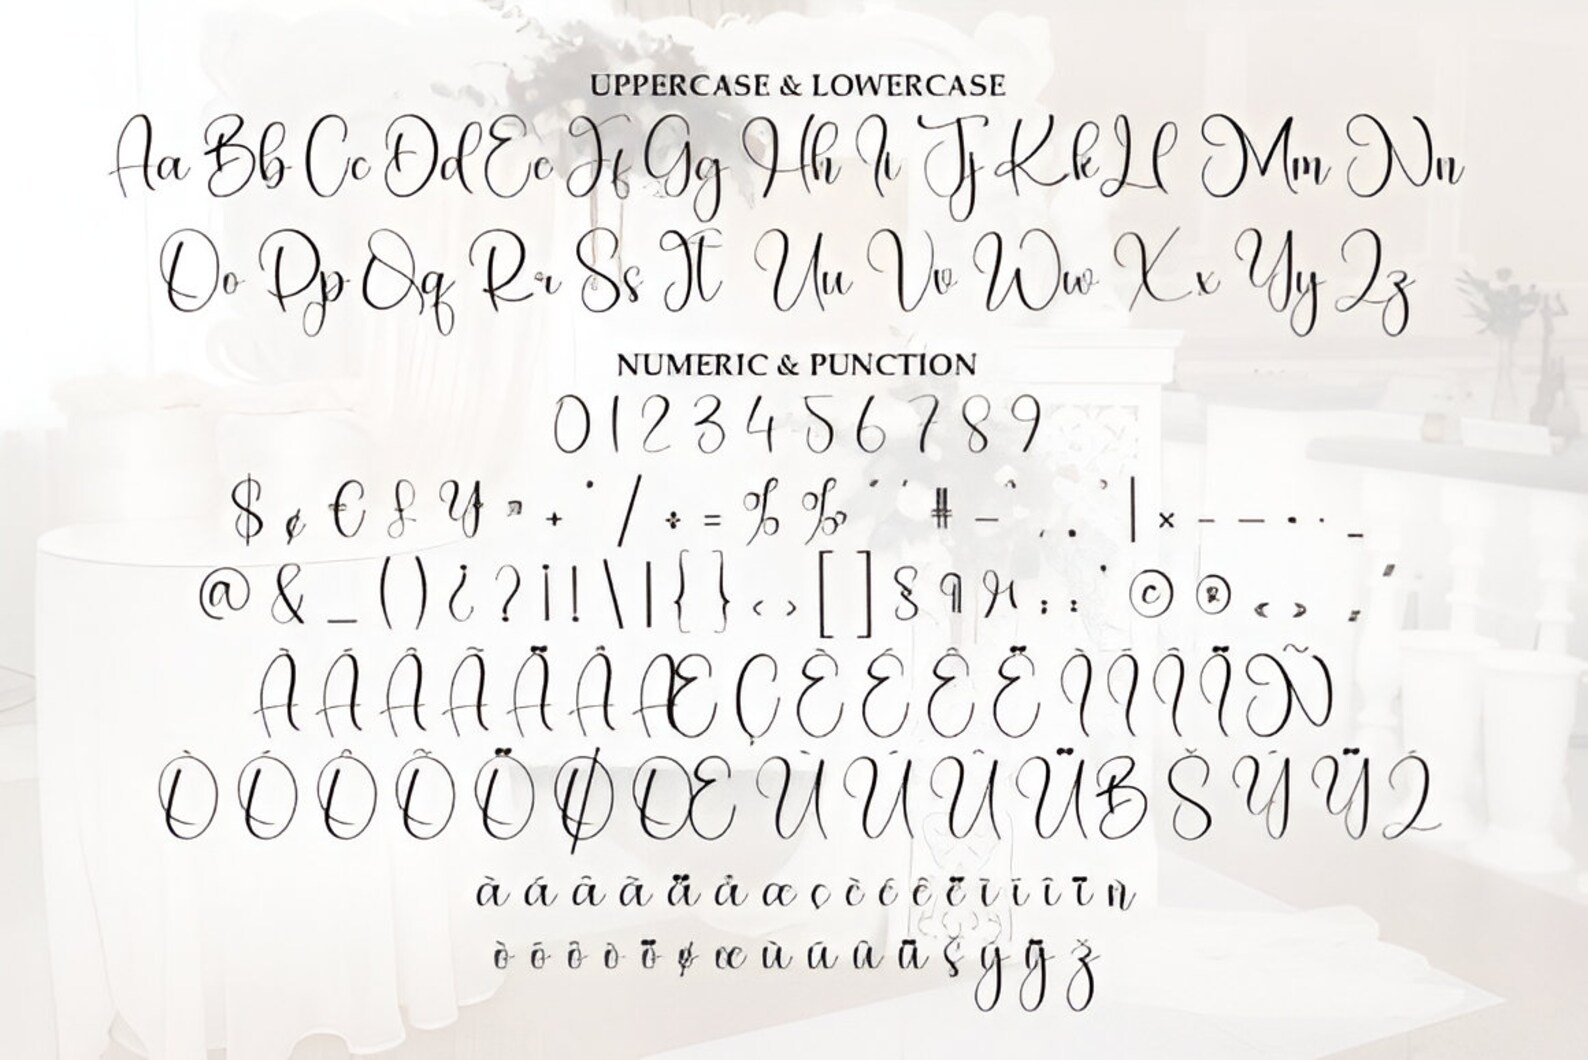 UPPERCASE & LOWERCASE
Aa Bb Cc Dd Ee Ff Gg Hh Ii Jj Kk Ll Mm Nn
Oo Pp Qq Rr Ss Tt Uu Vv Ww Xx Yy Zz
NUMERIC & PUNCTION
0 1 2 3 4 5 6 7 8 9
$ ¢ € £ ¥ ¤ + · / ÷ = % ‰ # – , . | × - — • · _
@ & _ ( ) ¿ ? ¡ ! \ | { } ‹ › [ ] § ¶ µ : ; ' © ® « » „ "
À Á Â Ã Ä Å Æ Ç È É Ê Ë Ì Í Î Ï Ñ
Ò Ó Ô Õ Ö Ø Œ Ù Ú Û Ü B Š Ý Ÿ Ž
à á â ã ä å æ ç è é ê ë ì í î ï ñ
ò ó ô õ ö ø œ ù ú û ü š ý ÿ ž